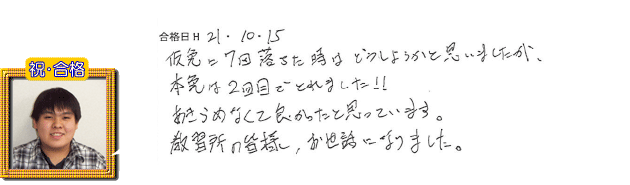 合格日 H 21・10・15
仮免に7回落ちた時はどうしようかと思いましたが、
祝・合格
本免は2回目でとれました!!
あきらめなくて良かったと思っています。
教習所の皆様、お世話になりました。